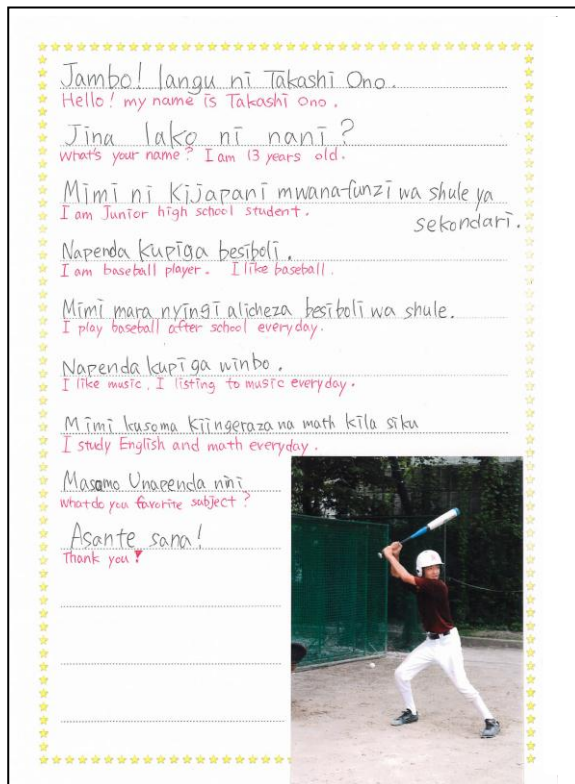 Jambo! langu ni Takashi Ono.
Hello! my name is Takashi Ono.
Jina lako ni nani?
What's your name? I am 13 years old.
Mimi ni Kijapani mwana-funzi wa shule ya
sekondari.
I am Junior high school student.
Napenda kupiga besiboli.
I am baseball player. I like baseball.
Mimi mara nyingi alicheza besiboli wa shule.
I play baseball after school everyday.
Napenda kupiga winbo.
I like music. I listing to music everyday.
Mimi kusoma Kiingeraza na math kila siku
I study English and math everyday.
Masomo Unapenda nini
What do you favorite subject?
Asante sana!
Thank you!